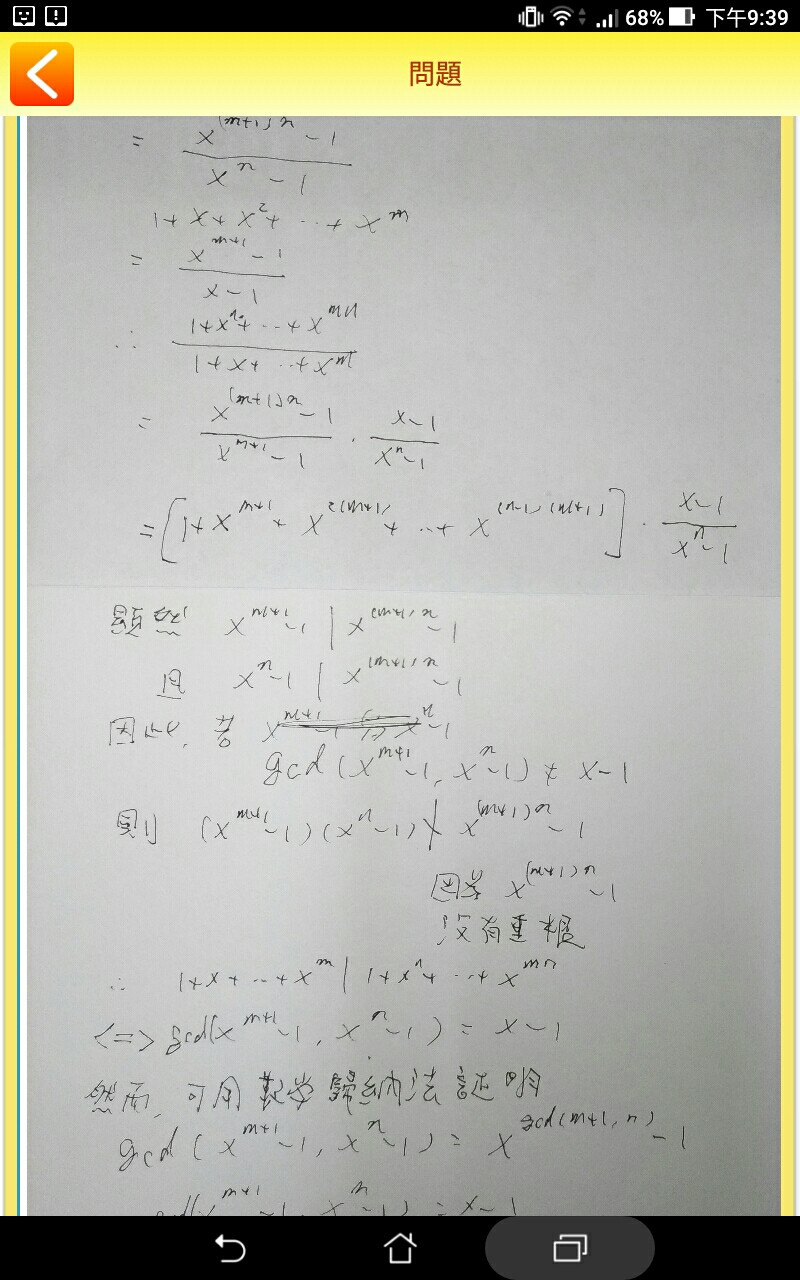 68% 下午9:39
問題
= (x^((m+1)n) - 1) / (x^n - 1)
1 + x + x^2 + ... + x^m
= (x^(m+1) - 1) / (x - 1)
∴ (1 + x^n + ... + x^(mn)) / (1 + x + ... + x^m)
= (x^((m+1)n) - 1) / (x^(m+1) - 1) · (x - 1) / (x^n - 1)
= [1 + x^(m+1) + x^(2(m+1)) + ... + x^((n-1)(m+1))] · (x - 1) / (x^n - 1)
顯然 x^(m+1) - 1 | x^((m+1)n) - 1
且 x^n - 1 | x^((m+1)n) - 1
因此, 若
gcd(x^(m+1) - 1, x^n - 1) ≠ x - 1
則 (x^(m+1) - 1)(x^n - 1) ∤ x^((m+1)n) - 1
因為 x^((m+1)n) - 1
没有重根
∴ 1 + x + ... + x^m | 1 + x^n + ... + x^(mn)
<=> gcd(x^(m+1) - 1, x^n - 1) = x - 1
然而, 可用數學歸納法証明
gcd(x^(m+1) - 1, x^n - 1) = x^(gcd(m+1, n)) - 1
gcd(x^(m+1) - 1, x^n - 1) = x - 1